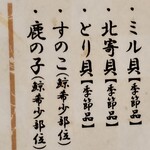 ・ミル貝【季節品】
・北寄貝【季節品】
・とり貝【季節品】
・すのこ(鯨希少部位)
・鹿の子(鯨希少部位)